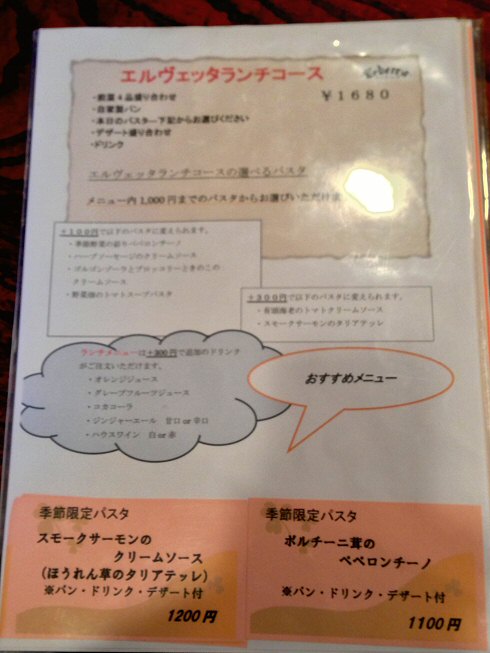 エルヴェッタランチコース
￥1680
・前菜4品盛り合わせ
・自家製パン
・本日のパスター下記からお選びください
・デザート盛り合わせ
・ドリンク
エルヴェッタランチコースの選べるパスタ
メニュー内1,000円までのパスタからお選びいただけ
+100円で以下のパスタに変えられます。
・季節野菜の彩りペペロンチーノ
・ハーブソーセージのクリームソース
・ゴルゴンゾーラとブロッコリーときのこの
クリームソース
・野菜畑のトマトスープパスタ
+300円で以下のパスタに変えられます。
・有頭海老のトマトクリームソース
・スモークサーモンのタリアテッレ
ランチメニューは+300円で追加のドリンク
がご注文いただけます。
・オレンジジュース
・グレープフルーツジュース
・コカコーラ
・ジンジャーエール 甘口or辛口
・ハウスワイン 白or赤
おすすめメニュー
季節限定パスタ
スモークサーモンの
クリームソース
(ほうれん草のタリアテッレ)
※パン・ドリンク・デザート付
1200円
季節限定パスタ
ポルチーニ茸の
ペペロンチーノ
※パン・ドリンク・デザート付
1100円